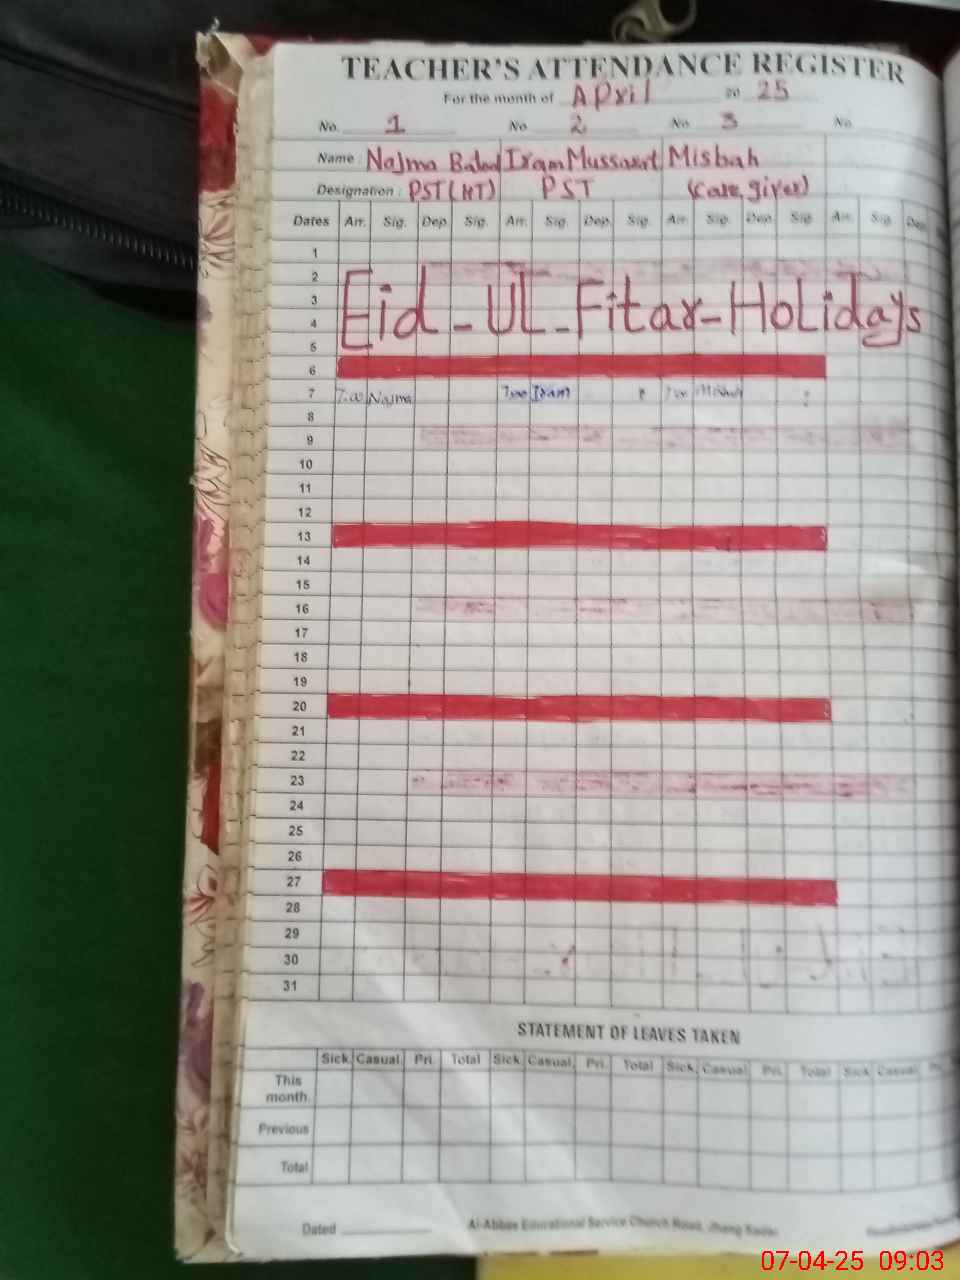 TEACHER'S ATTENDANCE REGISTER
For the month of April 20 25
No. 1 No 2 No 3 No.
Name : Najma Iram Mussarat Misbah
Designation : PST(HT) PST (Care giver)
Dates Arr. Sig. Dep. Sig. Arr. Sig. Dep. Sig. Arr. Sig. Dep. Sig. Arr. Sig. Dep.
1
2
3
4
5
Eid-Ul-Fitar-Holidays
6
7 7:00 Najma 7:00 Iram 7:00 Misbah
8
9
10
11
12
13
14
15
16
17
18
19
20
21
22
23
24
25
26
27
28
29
30
31
STATEMENT OF LEAVES TAKEN
Sick. Casual. Pri. Total Sick. Casual. Pri. Total Sick. Casual Pri. Total Sick Casual
This month.
Previous
Total
Dated
Al-Abbas Educational Service Church Road, Jhang Sadar
07-04-25 09:03